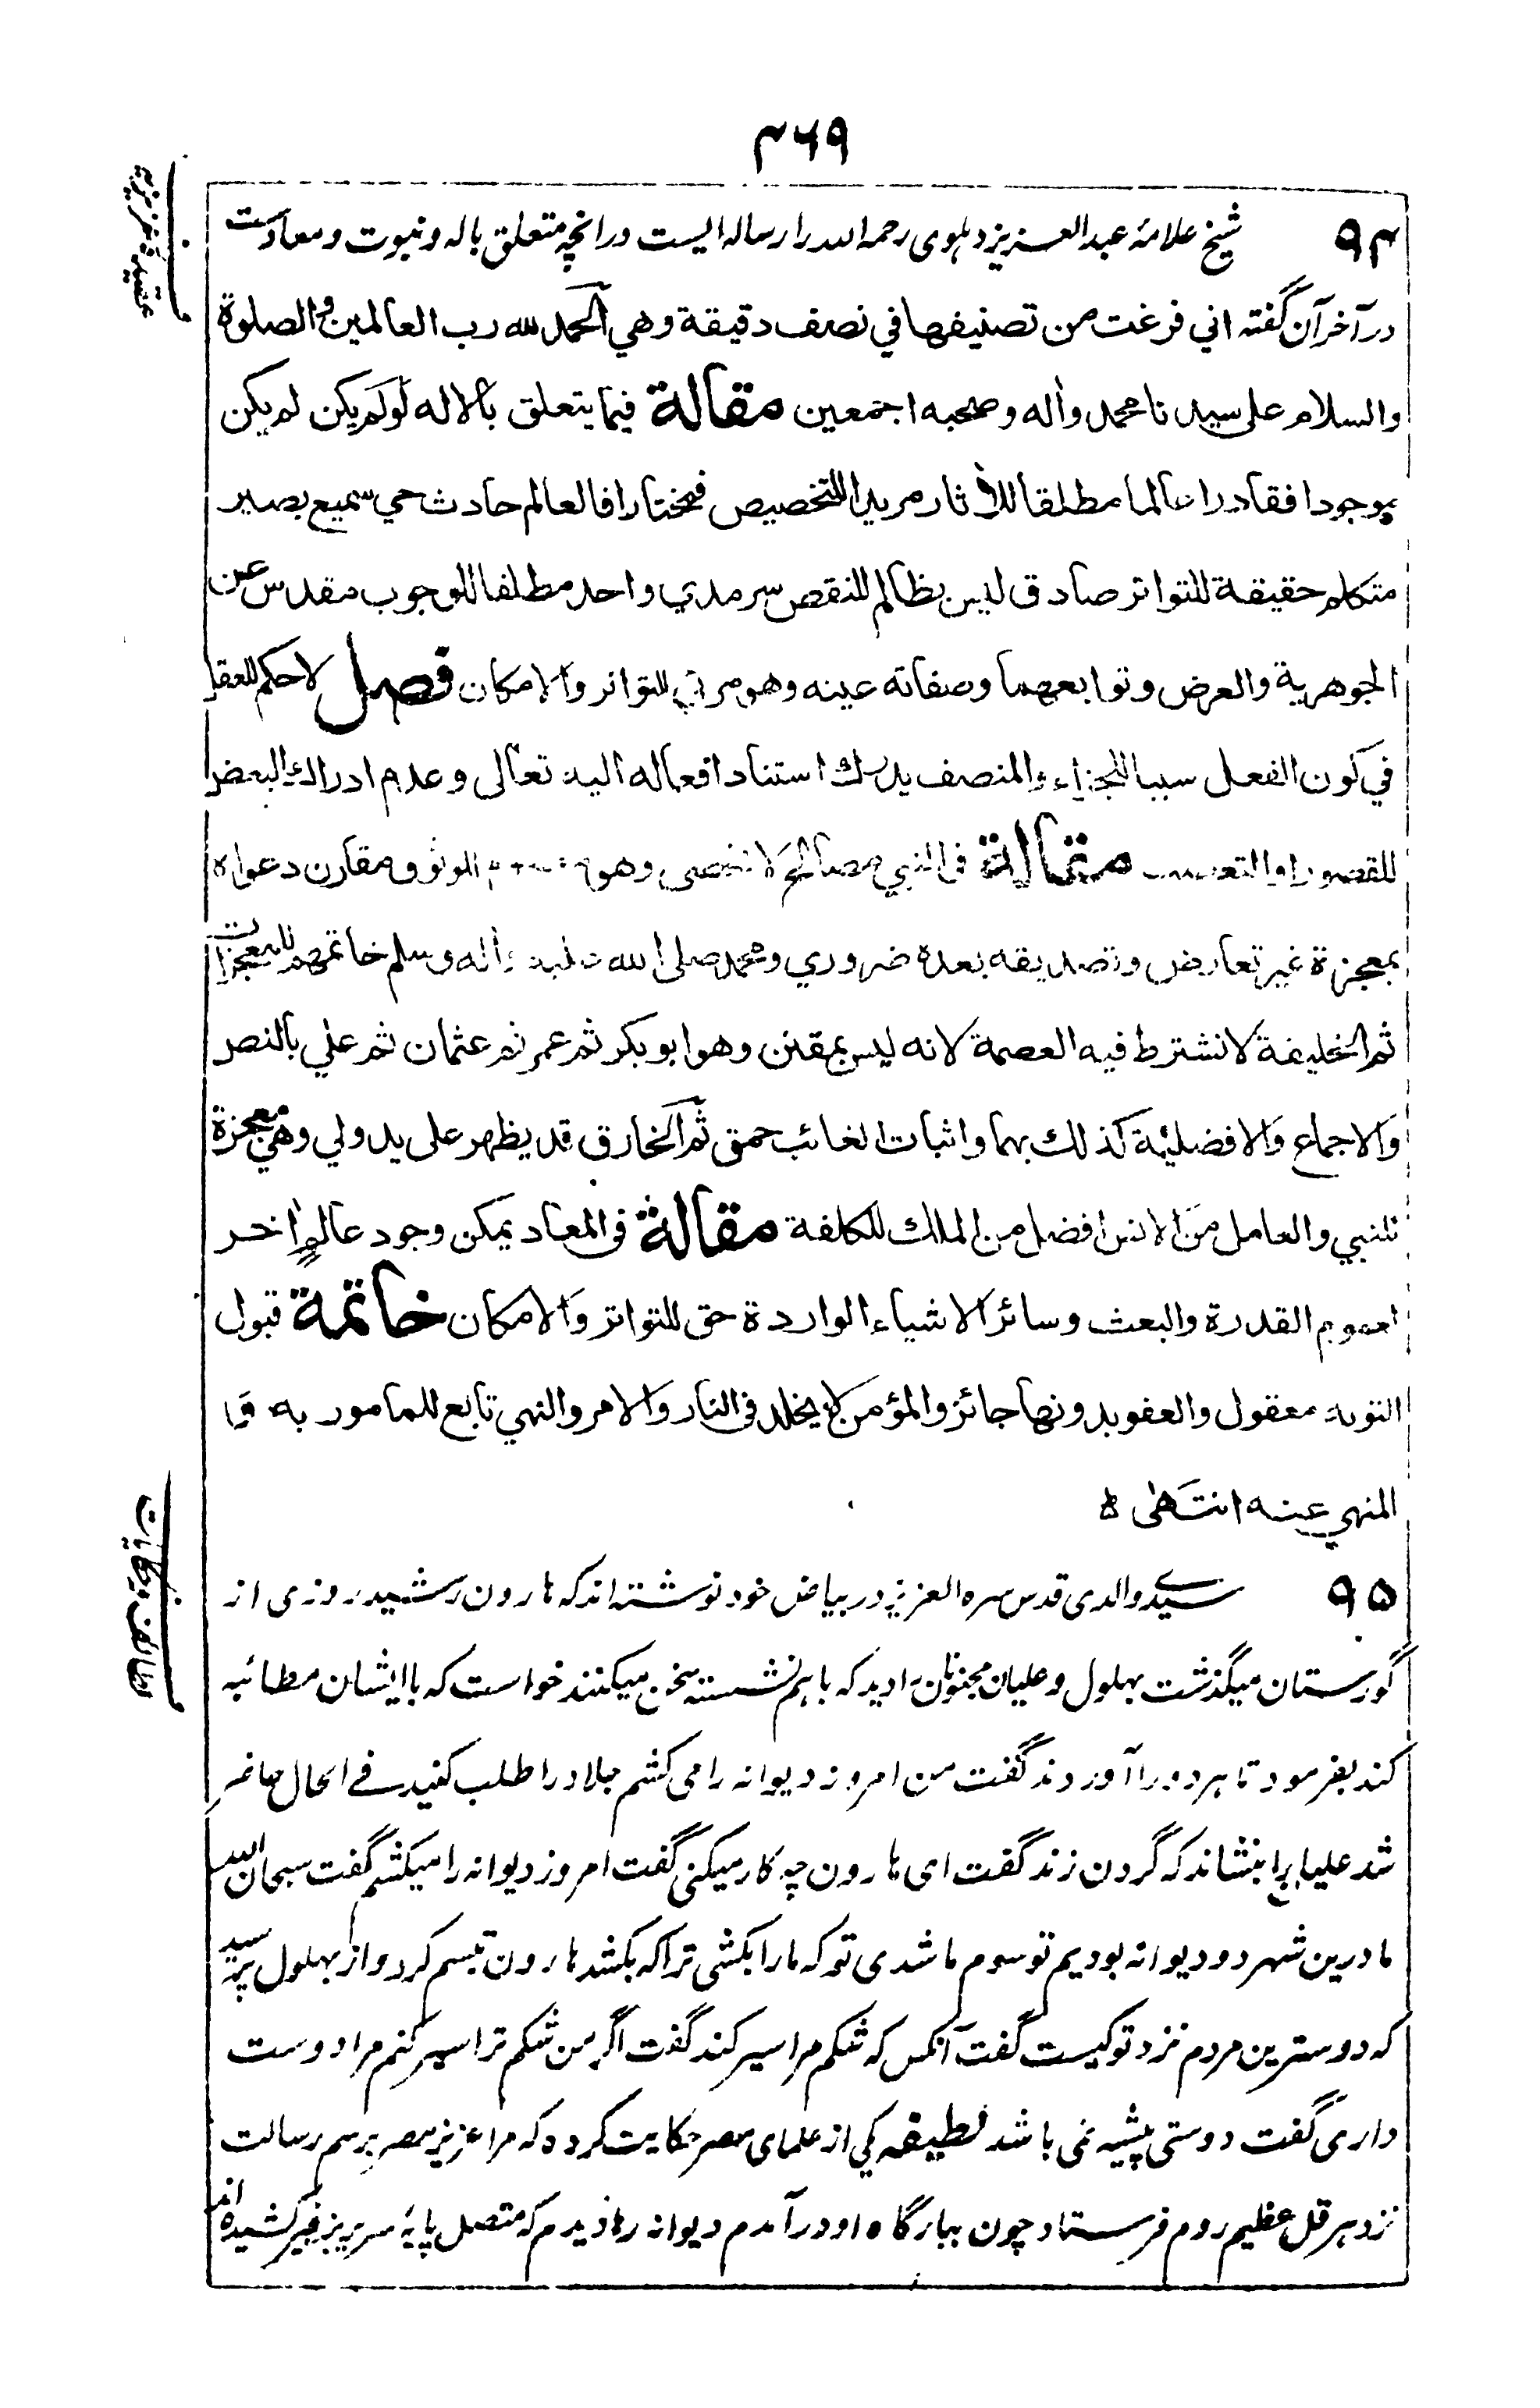 ۴۶۹
عقیدهٔ عزیزیه
۹۴ شیخ علامہ عبدالعزیز دہلوی رحمہ اللہ را رسالہ ایست در انچہ متعلق بالہ و نبوت و معاد ست
در آخر آن گفته اني فرغت من تصنيفها في نصف دقيقة وهي الحمد لله رب العالمين والصلوة
والسلام على سيدنا محمد واله وصحبه اجمعين مقالة فيما يتعلق بالاله لو لم يكن لم يكن
موجودا فقادرا عالما مطلقا للاثار مريدا للتخصيص فمختارا فالعالم حادث حي سميع بصير
متكلم حقيقة للتواتر صادق ليس بظالم للنقص سرمدي واحد مطلقا للوجوب مقدس عن
الجوهرية والعرض وتوابعهما وصفاته عينه وهو مرئي للتواتر والامكان فصل لا حكم للعقل
في كون الفعل سببا للجزاء والمنصف يدرك استناد افعاله اليه تعالى وعدم ادراك البعض
للقصور او التعصب مقالة في النبي مصالح لا تحصى وهو الوثوق مقارن دعواه
بمعجزة غير تعارض وتصديقه بعده ضروري ومحمد صلى الله عليه واله وسلم خاتمهم للمعجزات
ثم الخليفة لا نشترط فيه العصمة لانه ليس بمقنن وهو ابو بكر ثم عمر ثم عثمان ثم علي بالنص
والاجماع والافضلية كذلك بهما واثبات الغائب حمق ثم الخارق قد يظهر على يد ولي وهي معجزة
للنبي والعامل من الانس افضل من الملك للكلفة مقالة في المعاد يمكن وجود عالم اخر
لعموم القدرة والبعث وسائر الاشياء الواردة حق للتواتر والامكان خاتمة قبول
التوبة معقول والعفو بدونها جائز والمؤمن لا يخلد في النار والامر والنهي تابع للمامور به و
المنهي عنه انتهى ه
۹۵ سیدی والدی قدس سرہ العزیز در بیاض خود نوشتہ اند کہ ہارون رشید روزی از
گورستان میگذشت بہلول و علیان مجنونان را دید کہ باہم نشستہ سخن میکنند خواست کہ با ایشان مطائبہ
کند بفرمود تا ہر دو را آوردند گفت من امروز دیوانہ را می کشم جلاد را طلب کنید فے الحال حاضر
شد علیان را بنشاند کہ گردن زند گفت ای ہارون چہ کار میکنی گفت امروز دیوانہ را میکشم گفت سبحان اللہ
ما درین شہر دو دیوانہ بودیم تو سوم ما شدی تو کہ ما را بکشی ترا کہ بکشد ہارون تبسم کرد و از بہلول پرسید
کہ دوسترین مردم نزد تو کیست گفت آنکس کہ شکم مرا سیر کند گفت اگر من شکم ترا سیر کنم مرا دوست
داری گفت دوستی بنسیہ نمی باشد لطیفہ یکی از علمای مصر حکایت کردہ کہ مرا عزیز مصر برسم رسالت
نزد ہرقل عظیم روم فرستاد چون ببارگاہ او در آمدم دیوانہ را دیدم کہ متصل پایۂ سریر بزنجیر کشیدہ اند